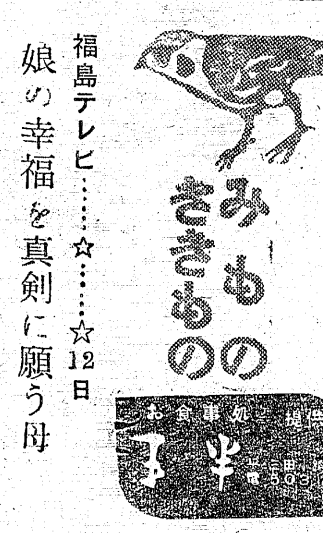 みもの
ききもの
お食事処
提供
半
503
福島テレビ……☆……☆12日
娘の幸福を真剣に願う母